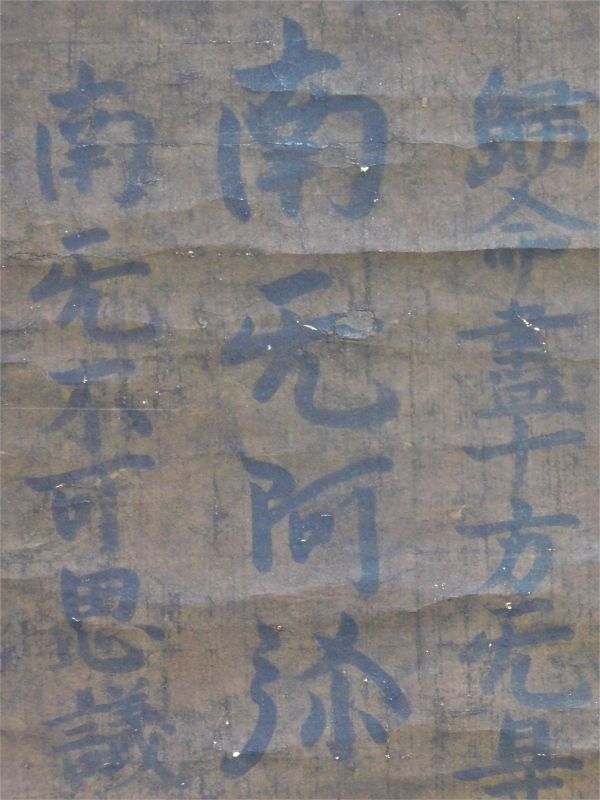 歸命盡十方无
南无阿弥
南无不可思議